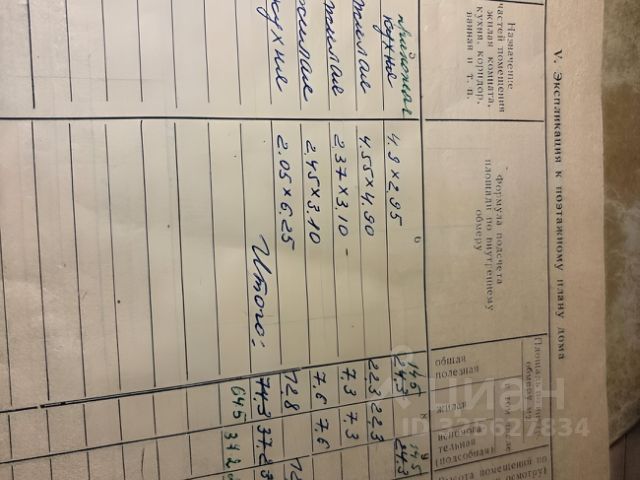 V. Экспликация к поэтажному плану дома
Назначение
частей помещения
жилая комната,
кухня, коридор,
ванная и т. п.
Формула подсчета
площади по внутреннему
обмеру
общая
полезная
жилая
(подсобная)
кухня 4.9 × 2.95 24,3 24,3
14,5 14,5
жилая 4.55 × 4.90 22,3 22,3
жилая 2.37 × 3.10 - 7,3 7,3
жилая 2.45 × 3.10 7,6 7,6
кухня 2.05 × 6.25 12,8
Итого: 74,3 37,2
64,5 37,2
циан
ID 325627834